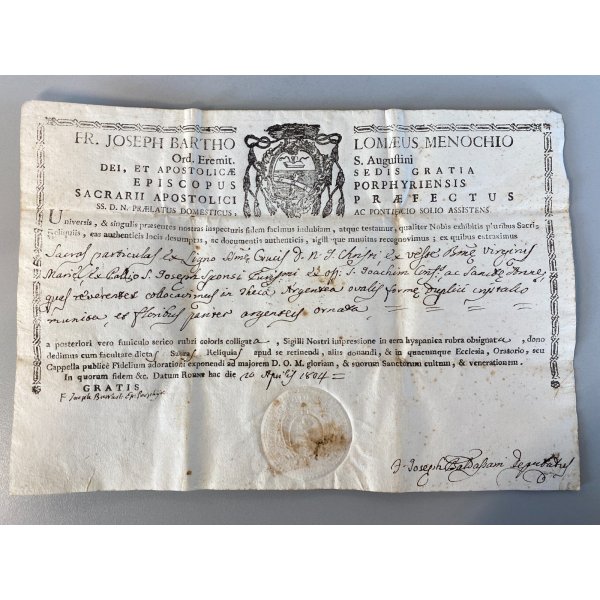 FR. JOSEPH BARTHOLOMÆUS MENOCHIO
Ord. Eremit. S. Augustini
DEI, ET APOSTOLICÆ SEDIS GRATIA
EPISCOPUS PORPHYRIENSIS
SACRARII APOSTOLICI PRÆFECTUS
SS. D. N. PRÆLATUS DOMESTICUS, AC PONTIFICIO SOLIO ASSISTENS.
Universis, & singulis præsentes nostras inspecturis fidem facimus indubiam, atque testamur, qualiter Nobis exhibitis pluribus Sacris
Reliquiis, eas authenticis locis desumptas, ac documentis authenticis, sigillque munitas recognovimus; ex quibus extraximus
Sacras particulas ex Ligno Smæ Crucis D. N. J. Christi ex Veste Bmæ Virginis
Mariæ ex Pallio S. Joseph Sponsi ex oss. S. Joachim ac Sanctæ Annæ,
quas reverenter collocavimus in theca Argentea ovalis formæ duplici cristallo
munita, et floribus pariter argenteis ornata
a posteriori vero funiculo serico rubri coloris colligata, Sigilli Nostri impressione in cera hyspanica rubra obsignata, dono
dedimus cum facultate dictas Sacras Reliquias apud se retinendi, aliis donandi, & in quacumque Ecclesia, Oratorio, seu
Cappella publicè Fidelium adorationi exponendi ad majorem D. O. M. gloriam, & suorum Sanctorum cultum, & venerationem.
In quorum fidem &c. Datum Romæ hac die 20 Aprilis 1804
GRATIS
F. Joseph Barthol. Ep. Porphyr.
F. Joseph Baldassari Deputatus